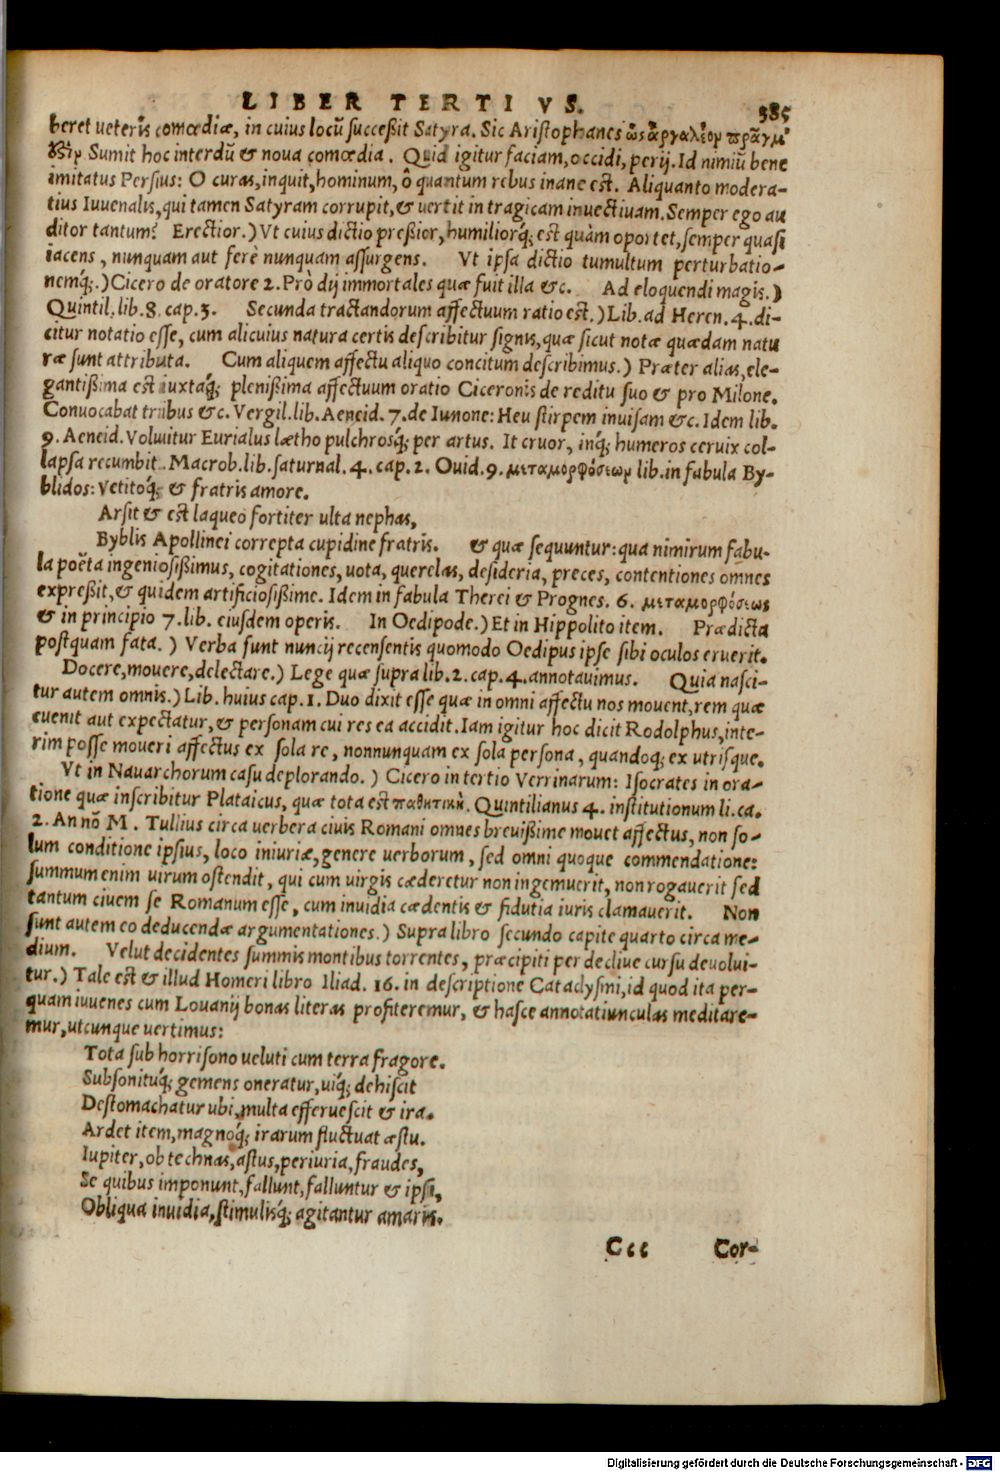 LIBER TERTIVS. 385
beret ueteris comœdiæ, in cuius locū succeßit Satyra. Sic Aristophanes ὡς ἀργαλέον πρᾶγμ'
Sumit hoc interdū & noua comœdia. Quid igitur faciam, occidi, perij. Id nimiū bene
imitatus Persius: O curas, inquit, hominum, ô quantum rebus inane est. Aliquanto modera-
tius Iuuenalis, qui tamen Satyram corrupit, & uertit in tragicam inuectiuam. Semper ego au
ditor tantum? Erectior.) Vt cuius dictio preßior, humiliorq́; est quàm oportet, semper quasi
iacens, nunquam aut ferè nunquam assurgens. Vt ipsa dictio tumultum perturbatio-
nemq́;.) Cicero de oratore 2. Prò dij immortales quæ fuit illa &c. Ad eloquendi magis.)
Quintil. lib. 8. cap. 3. Secunda tractandorum affectuum ratio est.) Lib. ad Heren. 4. di-
citur notatio esse, cum alicuius natura certis describitur signis, quæ sicut notæ quædam natu
ræ sunt attributa. Cum aliquem affectu aliquo concitum describimus.) Præter alias, ele-
gantißima est iuxtaq́; plenißima affectuum oratio Ciceronis de reditu suo & pro Milone.
Conuocabat tribus &c. Vergil. lib. Aeneid. 7. de Iunone: Heu stirpem inuisam &c. Idem lib.
9. Aeneid. Voluitur Eurialus lætho pulchrosq́; per artus. It cruor, inq́; humeros ceruix col-
lapsa recumbit. Macrob. lib. saturnal. 4. cap. 2. Ouid. 9. μεταμορφόσεων lib. in fabula By-
blidos: Vetitoq́; & fratris amore.
Arsit & est laqueo fortiter ulta nephas,
Byblis Apollinei correpta cupidine fratris. & quæ sequuntur: qua nimirum fabu-
la poëta ingeniosißimus, cogitationes, uota, querelas, desideria, preces, contentiones omnes
expreßit, & quidem artificiosißime. Idem in fabula Therei & Prognes. 6. μεταμορφόσεως
& in principio 7. lib. eiusdem operis. In Oedipode.) Et in Hippolito item. Prædicta
postquam fata.) Verba sunt nuncij recensentis quomodo Oedipus ipse sibi oculos eruerit.
Docere, mouere, delectare.) Lege quæ supra lib. 2. cap. 4. annotauimus. Quia nasci-
tur autem omnis.) Lib. huius cap. 1. Duo dixit esse quæ in omni affectu nos mouent, rem quæ
euenit aut expectatur, & personam cui res ea accidit. Iam igitur hoc dicit Rodolphus, inte-
rim posse moueri affectus ex sola re, nonnunquam ex sola persona, quandoq; ex utrisque.
Vt in Nauarchorum casu deplorando.) Cicero in tertio Verrinarum: Isocrates in ora-
tione quæ inscribitur Plataicus, quæ tota est παθητικὴ. Quintilianus 4. institutionum li. ca.
2. An nō M. Tullius circa uerbera ciuis Romani omnes breuißime mouet affectus, non so-
lum conditione ipsius, loco iniuriæ, genere uerborum, sed omni quoque commendatione:
summum enim uirum ostendit, qui cum uirgis cæderetur non ingemuerit, non rogauerit sed
tantum ciuem se Romanum esse, cum inuidia cædentis & fidutia iuris clamauerit. Non
sunt autem eo deducendæ argumentationes.) Supra libro secundo capite quarto circa me-
dium. Velut decidentes summis montibus torrentes, præcipiti per decliue cursu deuolui-
tur.) Tale est & illud Homeri libro Iliad. 16. in descriptione Cataclysmi, id quod ita per-
quam iuuenes cum Louanij bonas literas profiteremur, & hasce annotatiunculas meditare-
mur, utcunque uertimus:
Tota sub horrisono ueluti cum terra fragore.
Subsonituq́; gemens oneratur, uiq́; dehiscit
Destomachatur ubi, multa efferuescit & ira.
Ardet item, magnoq́; irarum fluctuat æstu.
Iupiter, ob technas, astus, periuria, fraudes,
Se quibus imponunt, fallunt, falluntur & ipsi,
Obliqua inuidia, stimulisq́; agitantur amaris.
Ccc Cor-
Digitalisierung gefördert durch die Deutsche Forschungsgemeinschaft - DFG